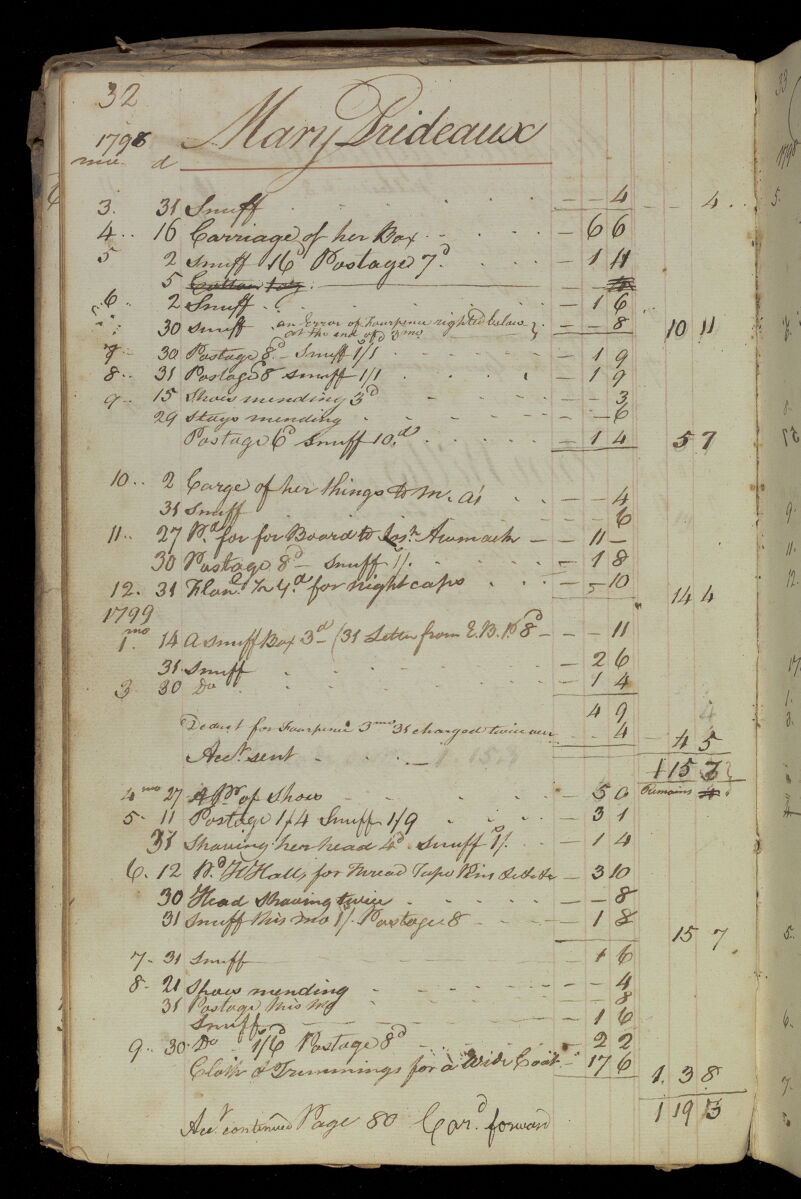 32
1798 Mary Prideaux
mo. d
3. 31 Snuff - - 4 - - 4
4 16 Carriage of her Box - 6 6
5 2 Snuff 16d Postage 7d - 1 11
5
6 2 Snuff - 1 6
30 Snuff an Error of Fourpence righted below at the end off 3 mo - - 8 10 11
7 30 Postage 8d - Snuff 1/1 - 1 9
8 31 Postage 8 Snuff 1/1 - 1 9
9 15 Shoes mending 3d - - 3
29 Stays mending - - 6
Postage 6d Snuff 10d - 1 4 5 7
10 2 Carge of her things to - - 4
31 Snuff - - 6
11 27 Pd for for Board to - 11 -
30 Postage 8d - Snuff 1/. - 1 8
12. 31 for nightcaps - - 10 14 4
1799
mo
1. 14 A Snuff Box 3d - (31 Letter from E. B. 8d - - 11
31 Snuff - 2 6
3 30 Do - 1 4
4 9
Deduct for Fourpence 3mo 31 charged twice over 4 - 4 5
Acct sent 1 15 3
Remains
4mo 27 A Pr of Shoes - 5 0
5 11 Postage 1/4 Snuff 1/9 - 3 1
31 Shaving her head 4d Snuff 1/. - 1 4
6. 12 Pd H Halls for Thread Tape Pins - 3 10
30 Head Shaving twice - - 8
31 Snuff this mo 1/. Postage 8 - 1 8 15 7
7 31 Snuff - 1 6
8 21 Shoes mending - - 4
31 Postage this mo - - 8
Snuff - 1 6
9 30 Do 1/6 Postage 8d - 2 2
Cloth & Trimmings for a Wide Coat - 17 6 1. 3 8
1 19 3
Acct continued Page 80 Card forward
33
1798